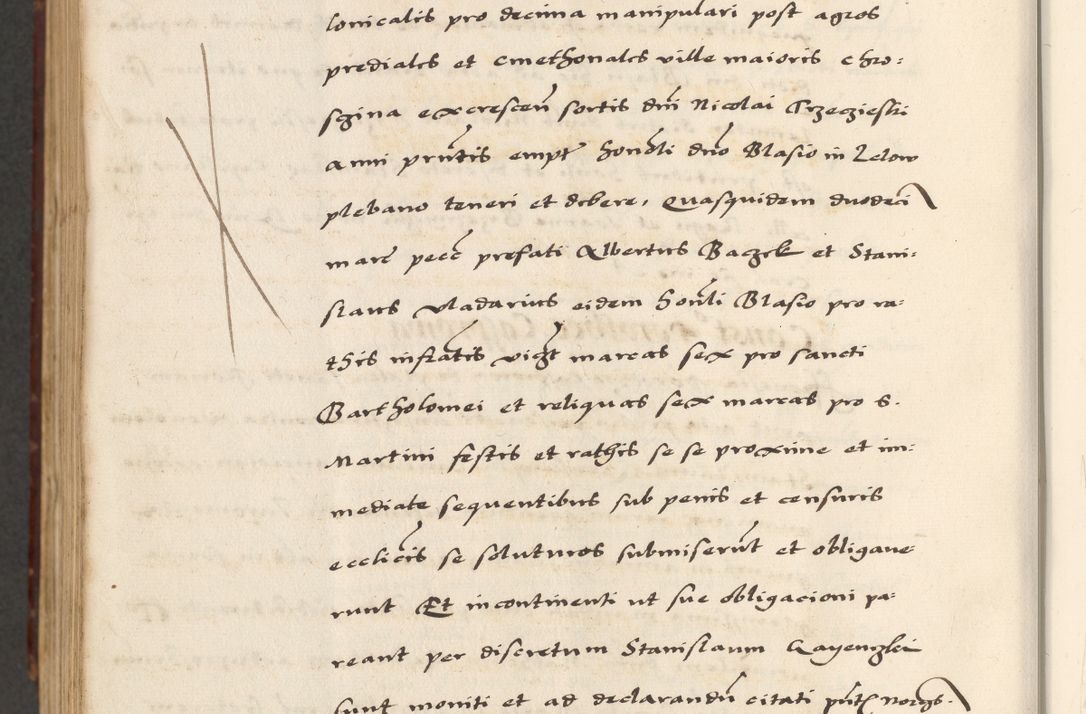 lonicalis pro decima manipulari post agros
prediales et cmethonales ville maioris Chro-
sgina excrescen̄ sortis dn̄i Nicolai Trzeczieski
anni prn̄tis empt honbli dn̄o Blasio in Lelow
plebano teneri et debere, Quasquidem duodeci
marc pecc prefati Albertus Baczek et Stani-
slaus Vladarius eidem honbli Blasio pro ra-
this infratis vigt marcas sex pro sancti
Bartholomei et reliquas sex marcas pro S.
Martini festis et rathis se se proxime et im-
mediate sequentibus sub penis et censuris
ecclicis se soluturos submiserūt et obligave
runt Et incontinenti ut sue obligacioni pa-
reant per discretum Stanislaum
sunt moniti et ad declarandū citati pn̄t